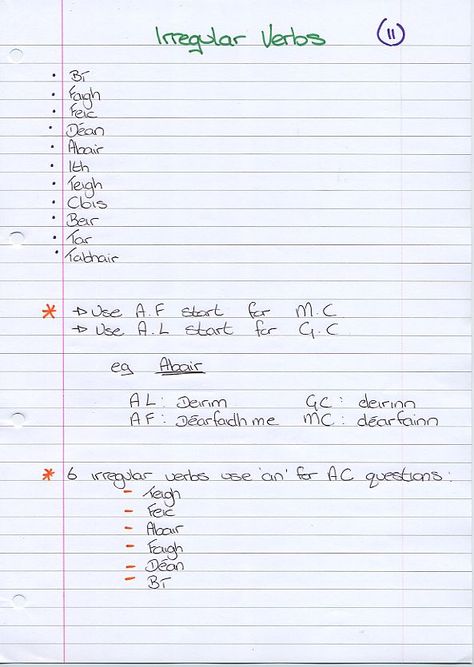 Irregular Verbs 11
• Bí
• Faigh
• Feic
• Déan
• Abair
• Ith
• Teigh
• Clois
• Beir
• Tar
• Tabhair
* → Use A.F start for M.C
→ Use A.L start for G.C.
eg Abair
AL: Deirim GC: deirinn
AF: Déarfadh me MC: déarfainn
* 6 irregular verbs use 'an' for AC questions:
- Teigh
- Feic
- Abair
- Faigh
- Déan
- Bí